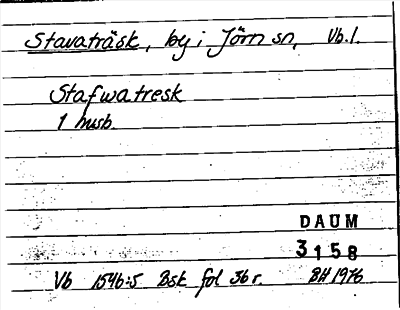 Stavaträsk, by i Jörn sn, Vb.l.
Stafwatresk
1 husb.
DAUM
3158
Vb 1546:5 Bsk fol 36 r. BH 1976